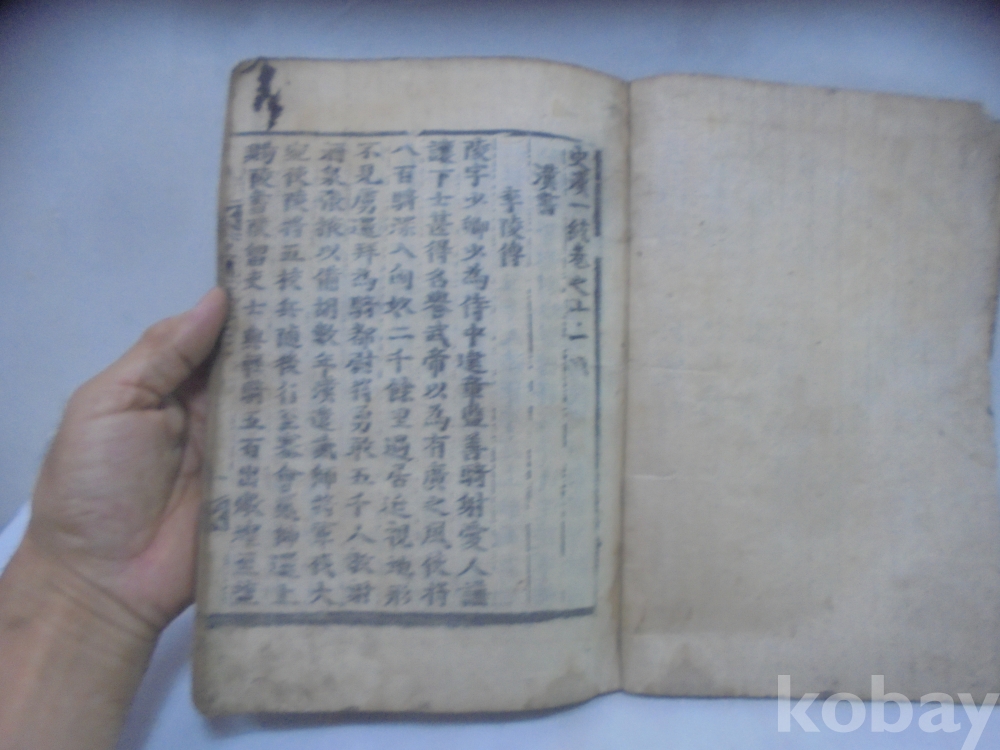 史漢一統卷之上二
漢書
李陵傳
陵字少卿少為侍中建章監善騎射愛人謙
讓下士甚得名譽武帝以為有廣之風使將
八百騎深入匈奴二千餘里過居延視地形
不見虜還拜為騎都尉將勇敢五千人教射
酒泉張掖以備胡數年漢遣貳師將軍伐大
宛使陵將五校兵隨後行至塞會貳師還上
賜陵書陵留吏士與輕騎五百出燉煌至鹽
kobay